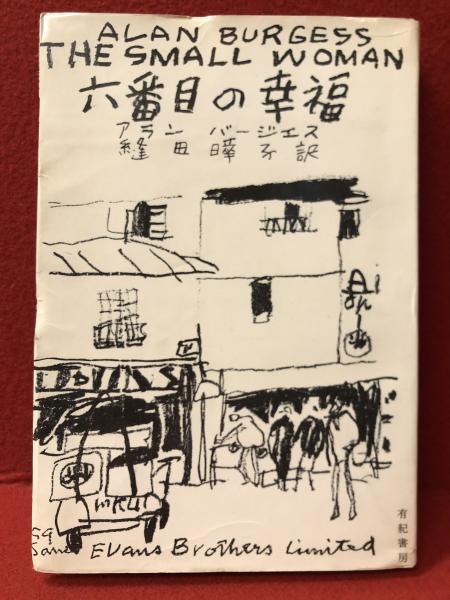 ALAN BURGESS
THE SMALL WOMAN
六番目の幸福
アラン バージェス
縫田曄子訳
有紀書房
Evans Brothers Limited